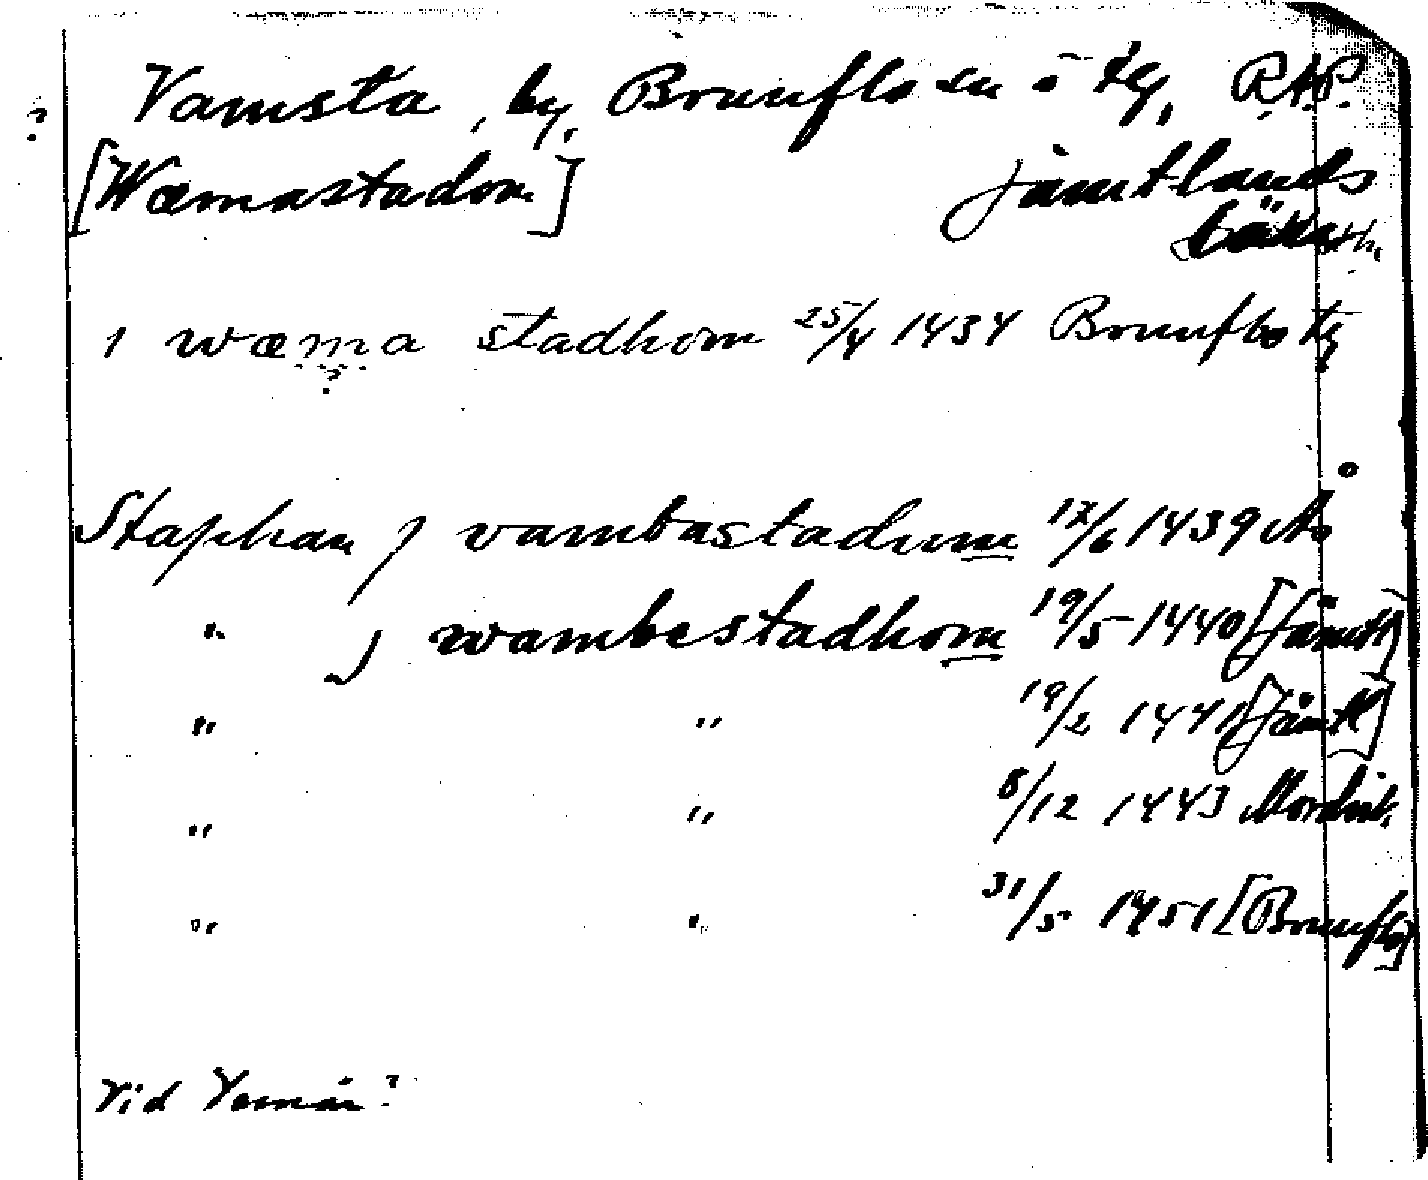 ? Vamsta, by, Brunflo sn o tg, RAP.
[Wæmastadom] Jämtlands
i wæma stadhom 25/4 1434 Brunflo tg
?
Staphan j vambastadum 17/6 1439 Ås
" j wambestadhom 19/5 1440 [Jämtl]
" " 19/2 1441 [Jämtl]
" " 8/12 1443 Mordvik.
" " 31/5 1451 [Brunflo]
Vid Vamån?